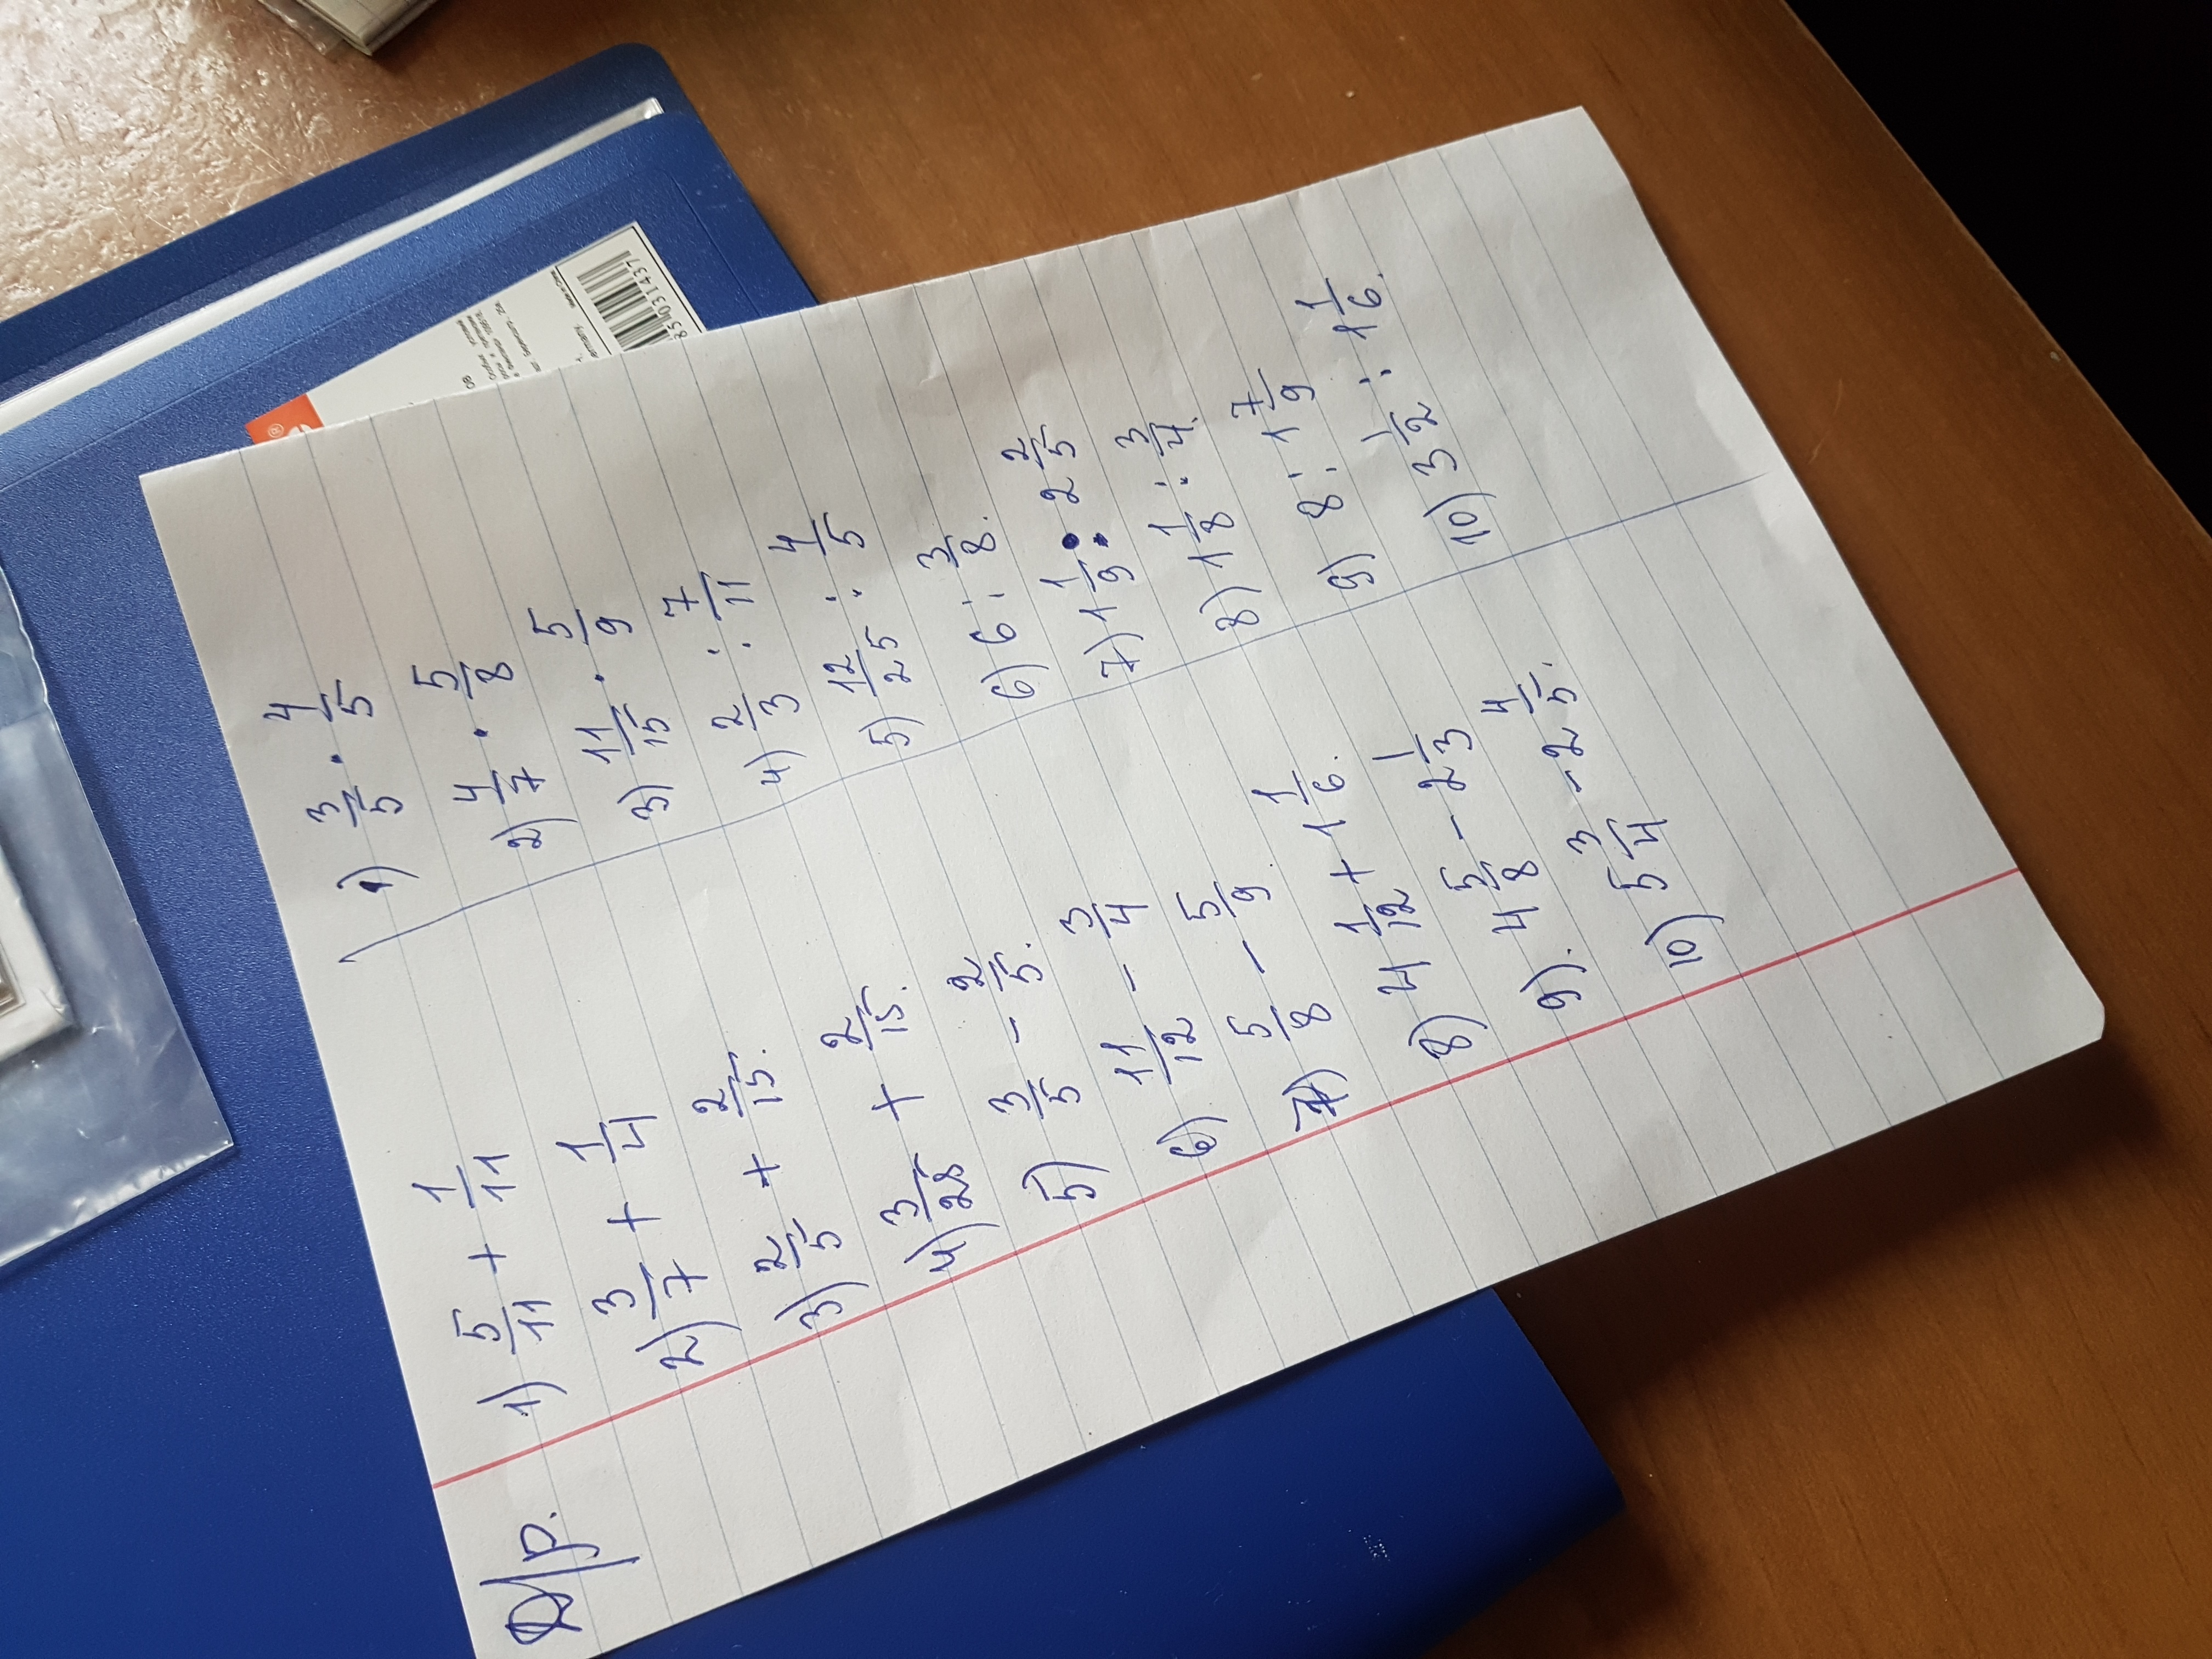 Д/р.
1) 5/11 + 1/11
2) 3/7 + 1/4
3) 2/5 + 2/15.
4) 3/25 + 2/15.
5) 3/5 - 2/5.
6) 11/12 - 3/4
7) 5/8 - 5/9
8) 4 1/12 + 1 1/6.
9). 4 5/8 - 2 1/3
10) 5 3/4 - 2 4/5.
1) 3/5 · 4/5
2) 4/7 · 5/8
3) 11/15 · 5/9
4) 2/3 : 7/11
5) 12/25 : 4/5
6) 6 : 3/8.
7) 1 1/9 : 2 2/5
8) 1 1/8 : 3/4.
9) 8 : 1 7/9
10) 3 1/2 : 1 1/6.
Made in China.